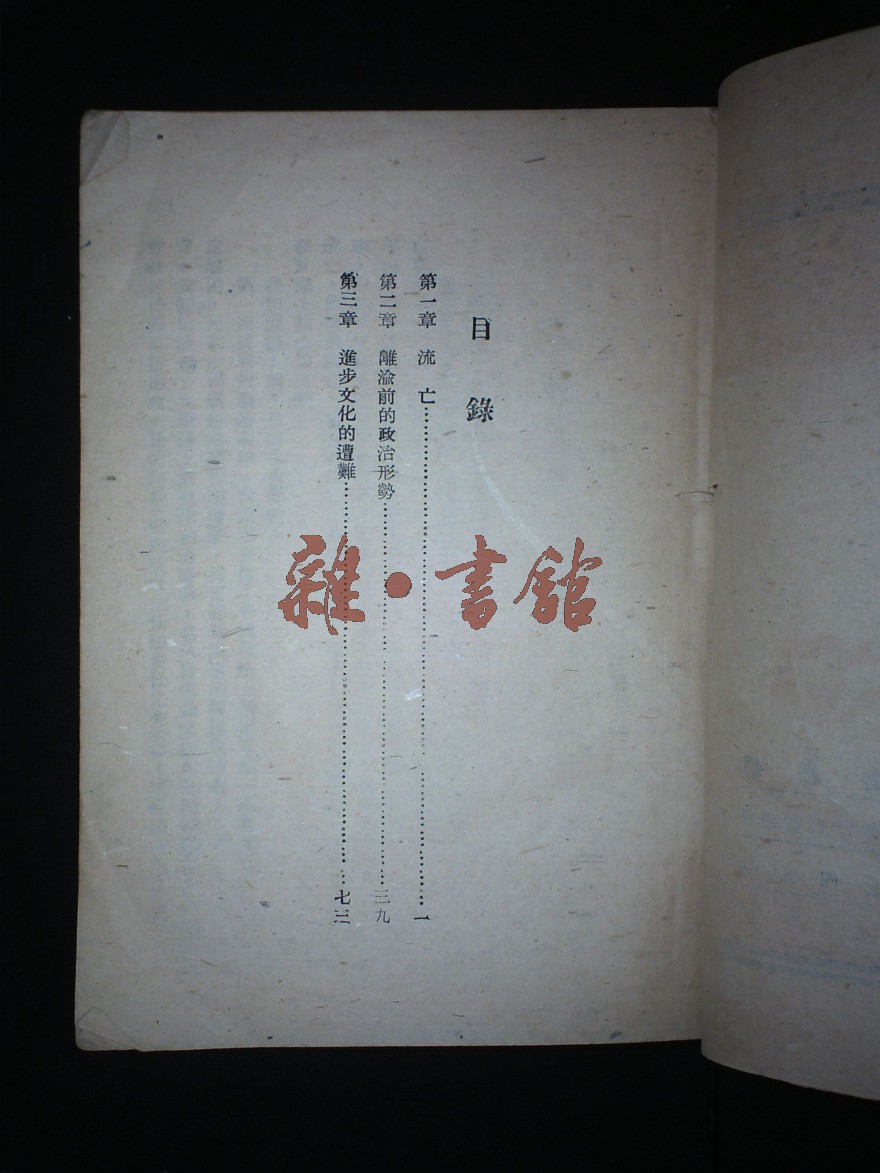 目錄
第一章 流亡……一
第二章 離渝前的政治形勢……三九
第三章 進步文化的遭難……七三
雜·書館